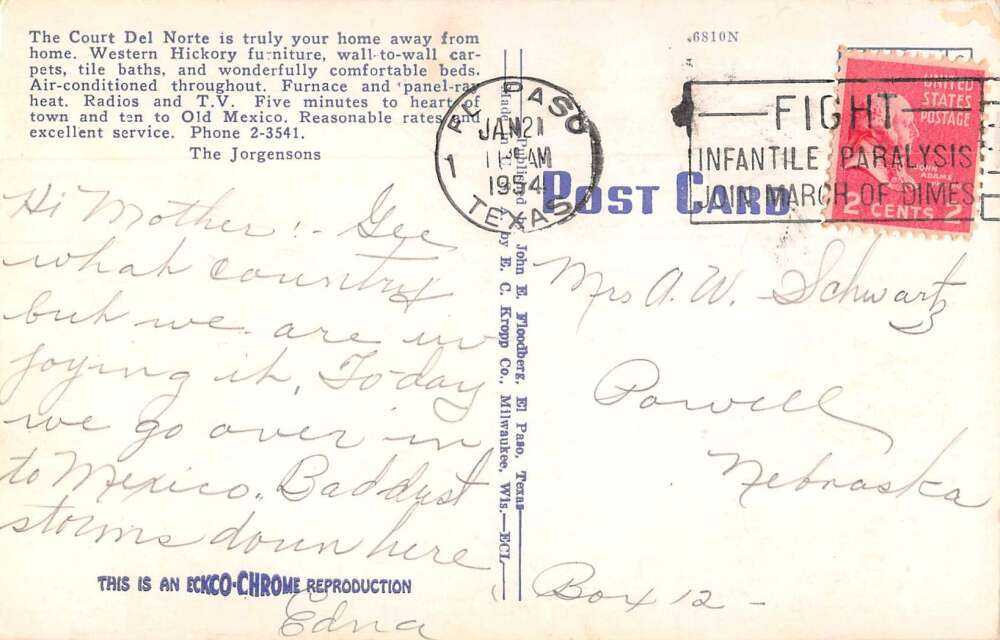 The Court Del Norte is truly your home away from
home. Western Hickory furniture, wall-to-wall car-
pets, tile baths, and wonderfully comfortable beds.
Air-conditioned throughout. Furnace and panel-ray
heat. Radios and T.V. Five minutes to heart of
town and ten to Old Mexico. Reasonable rates and
excellent service. Phone 2-3541.
The Jorgensons
Hi Mother! - Gee
what country
but we are in
joying it. Today
we go over in
to Mexico. Bad dust
storms down here
Edna
THIS IS AN ECKCO-CHROME REPRODUCTION
Published by John E. Floodberg, El Paso, Texas
Made in U.S.A. by E. C. Kropp Co., Milwaukee, Wis.—ECL
6810N
EL PASO
JAN 21
AM
1954
TEXAS
1
FIGHT
INFANTILE PARALYSIS
JOIN MARCH OF DIMES
UNITED
STATES
POSTAGE
JOHN
ADAMS
2 CENTS 2
POST CARD
Mrs A. W. Schwartz
Powell
Nebraska
Box 12 -